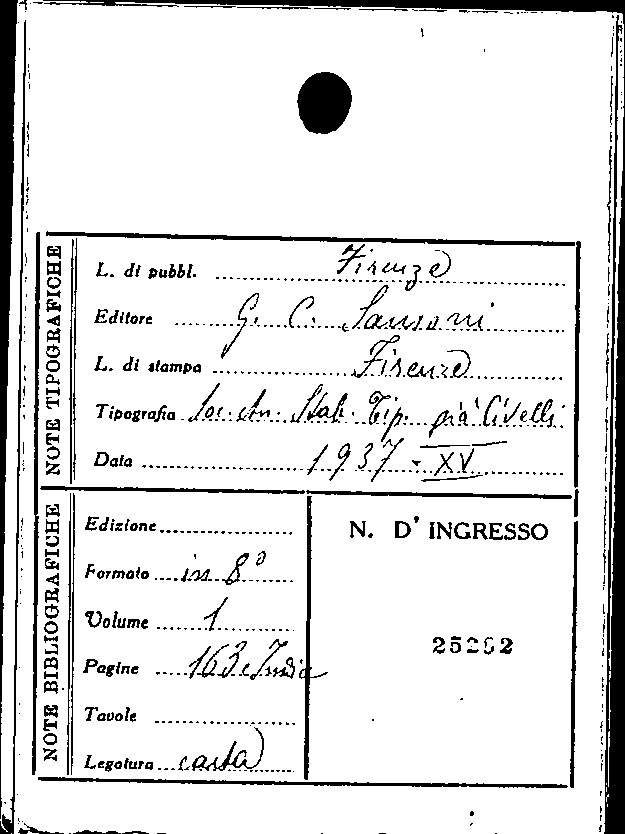 NOTE TIPOGRAFICHE
L. di pubbl. Firenze
Editore G. C. Sansoni
L. di stampa Firenze
Tipografia Soc. An. Stab. Tip. già Civelli
Data 1937 - XV
NOTE BIBLIOGRAFICHE
Edizione
Formato in 8º
Volume 1
Pagine 163 e
Tavole
Legatura carta
N. D' INGRESSO